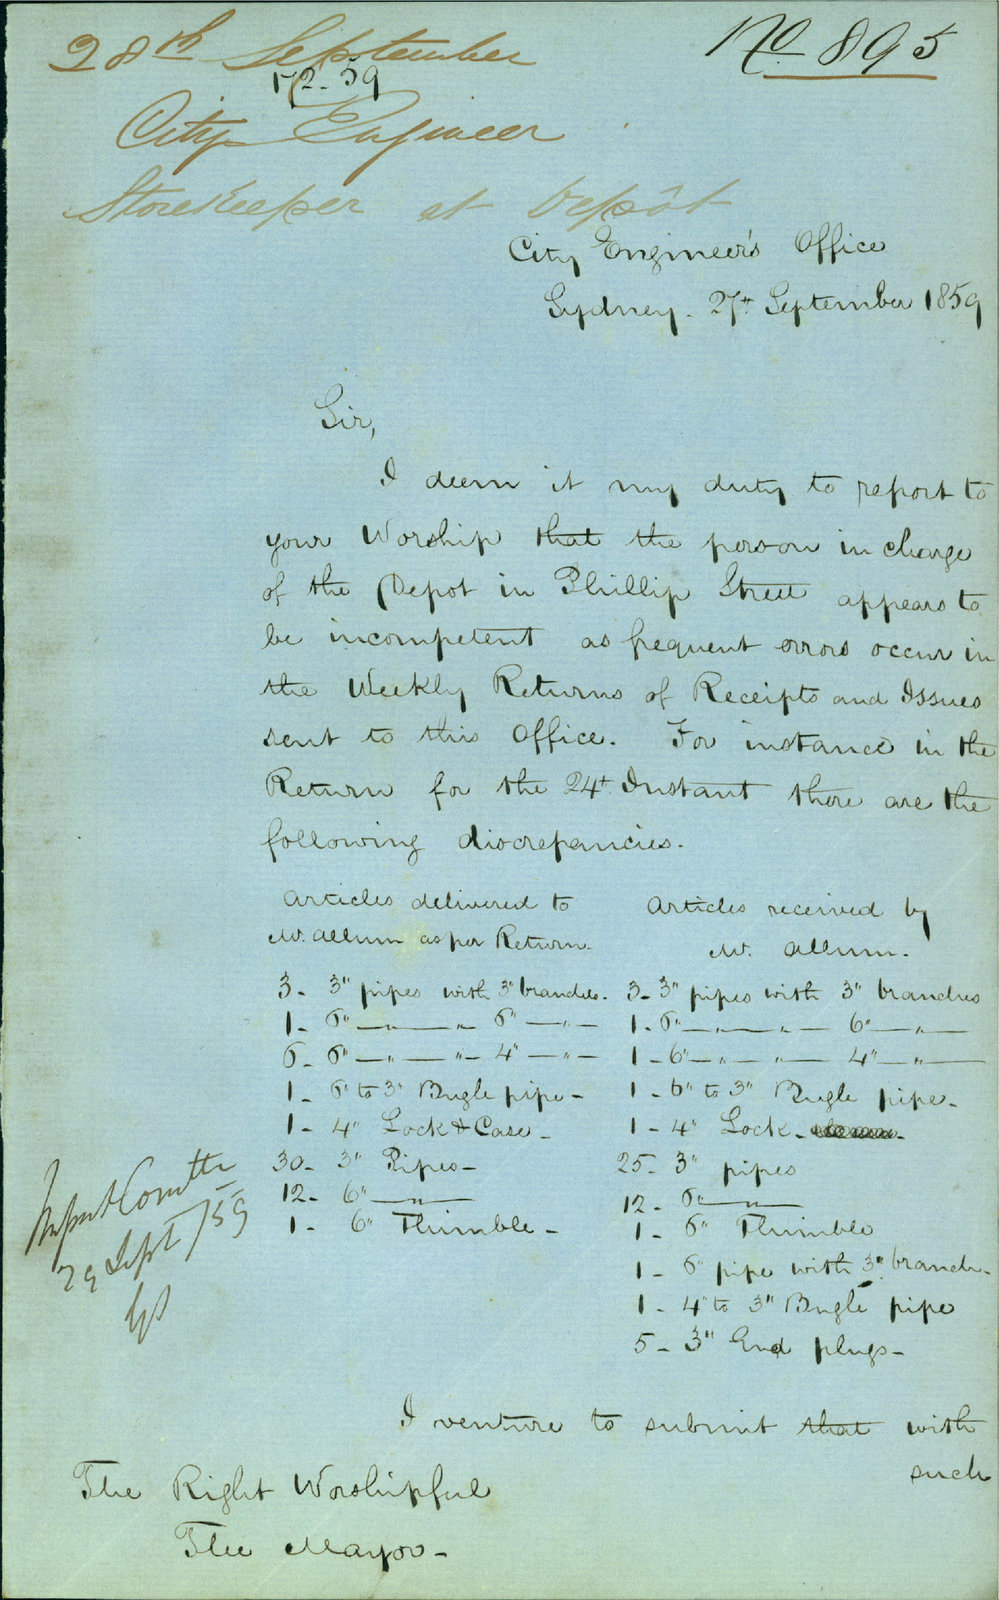 28th September
No. 895
172-59
City Engineer
Storekeeper at Depôt
City Engineer's Office
Sydney. 27th September 1859
Sir,
I deem it my duty to report to
your Worship that the person in charge
of the Depot in Phillip Street appears to
be incompetent as frequent errors occur in
the Weekly Returns of Receipts and Issues
sent to this Office. For instance in the
Return for the 24th Instant there are the
following discrepancies.
Articles delivered to Articles received by
Mr. Allum as per Return. Mr. Allum.
3- 3" pipes with 3" branches. 3- 3" pipes with 3" branches
1- 6" — " — " 6" — " — 1- 6" — " — " — 6" — " —
6- 6" — " — " — 4" — " — 1- 6" — " — " — 4" — " —
1- 6" to 3" Bugle pipe- 1- 6" to 3" Bugle pipe-
1- 4" Lock & Case- 1- 4" Lock-
30- 3" Pipes- 25- 3" pipes
12- 6" — " — 12- 6" — " —
1- 6" Thimble- 1- 6" Thimble
1- 6" pipe with 3" branch-
1- 4" to 3" Bugle pipe
5- 3" End plugs-
29 Sept/59
I venture to submit that with
such
The Right Worshipful
The Mayor-